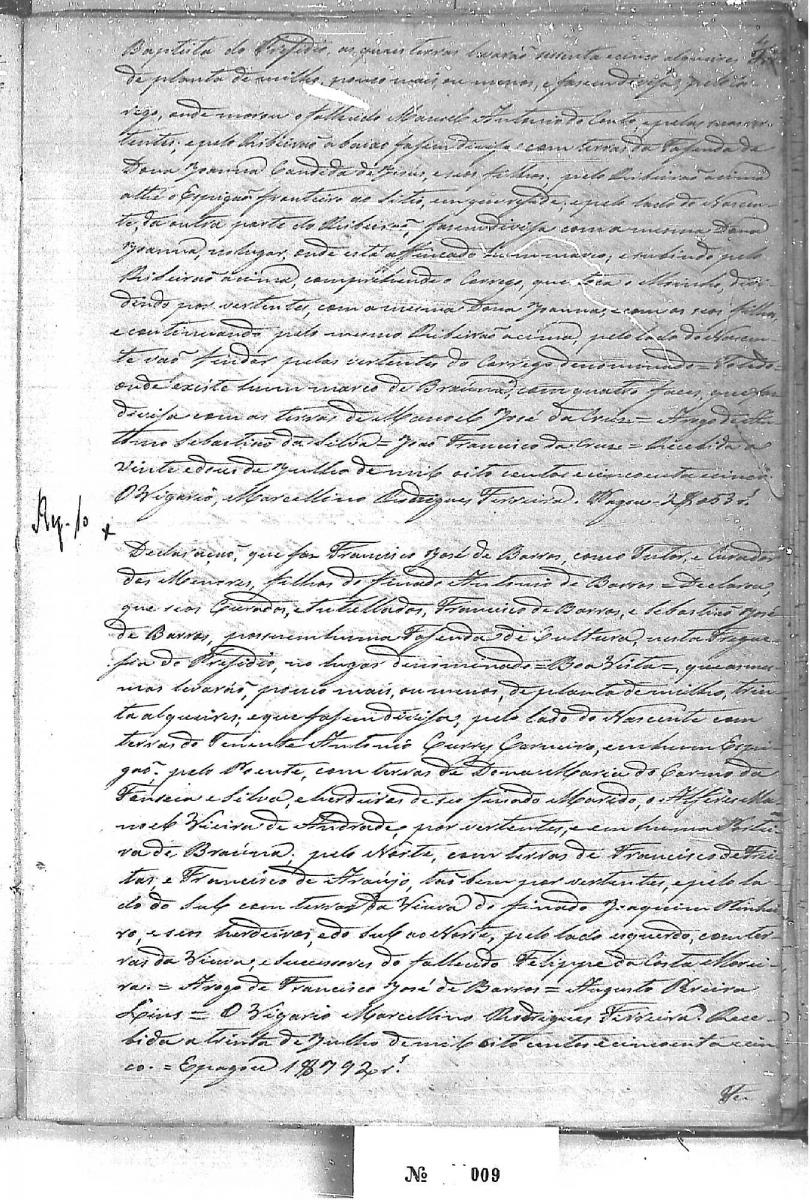 Baptista do Presidio, as quaes terras levarão secenta e cinco alqueires
de planta de milho, pouco mais ou menos, e fasem divisas, pelo Cor-
rego, onde morou o fallecido Manoel Antonio do Couto, e pelas suas ver-
tentes; e pelo Ribeirão abaixo fasem divisa com terras da Fasenda da
Dona Joanna Candida de Jesus, e seos filhos; pelo Ribeirão acima
athé o Espigão fronteiro ao sitio, em que reside, e pelo lado do Nascen-
te, da outra parte do Ribeirão, fasem divisa com a mesma Dona
Joanna, no lugar, onde está affincado hum marco; e subindo pelo
Ribeirão acima, comprehende o Corrego, que toca o Moinho, divi-
dindo por vertentes, com a mesma Dona Joanna, e com os seos filhos,
e continuando pelo mesmo Ribeirão acima, pelo lado do Nascen-
te vão findar pelas vertentes do Corrego denominado = Toledo =
onde existe hum marco de Braúna, com quatro faces, que faz
divisa com as terras de Manoel José da Cruz = Arogo de An-
tonio Sebastião da Silva = João Francisco da Cruz = Recebida a
vinte e dous de Julho de mil oito centos e cincoenta e cinco.
O Vigario, Marcellino Rodrigues Ferreira. Pagou 2$053 r.s
Rg. 10 +
Declaração, que faz Francisco José de Barros, como Tutor, e Curador
dos Menores, filhos do finado Antonio de Barros = Declarou,
que seos Curados, e Tutellados, Francisco de Barros, e Sebastião José
de Barros, possuem huma Fasenda de Cultura, nesta Fregue-
sia do Presidio, no lugar denominado = Boa Vista =, que as mes-
mas levarão, pouco mais, ou menos, de planta de milho, trin-
ta alqueires; e que fasem divisa, pelo lado do Nascente com
terras do Tenente Antonio Carneiro, em hum Espi-
gão; pelo Poente, com terras de Dona Maria do Carmo da
Fonseca e Silva, e herdeiros de seo finado Marido, o Alferes Ma-
noel Vieira de Andrade, por vertentes, e em huma Portei-
ra de Braúna; pelo Norte, com terras de Francisco de Frei-
tas, e Francisco de Araujo, tão bem por vertentes, e pelo la-
do do Sul com terras da Viuva do finado Joaquim Pinhei-
ro, e seos herdeiros, e do Sul ao Norte, pelo lado esquerdo, com ter-
ras da Viuva, e successores do fallecido Felippe da Costa Morei-
ra. = Arogo de Francisco José de Barros = Augusto Pereira
Lins = O Vigario Marcellino Rodrigues Ferreira. Rece-
bida a trinta de Julho de mil oito centos e cincoenta e cin-
co. = E pagou 1$792 r.s
Nº 009